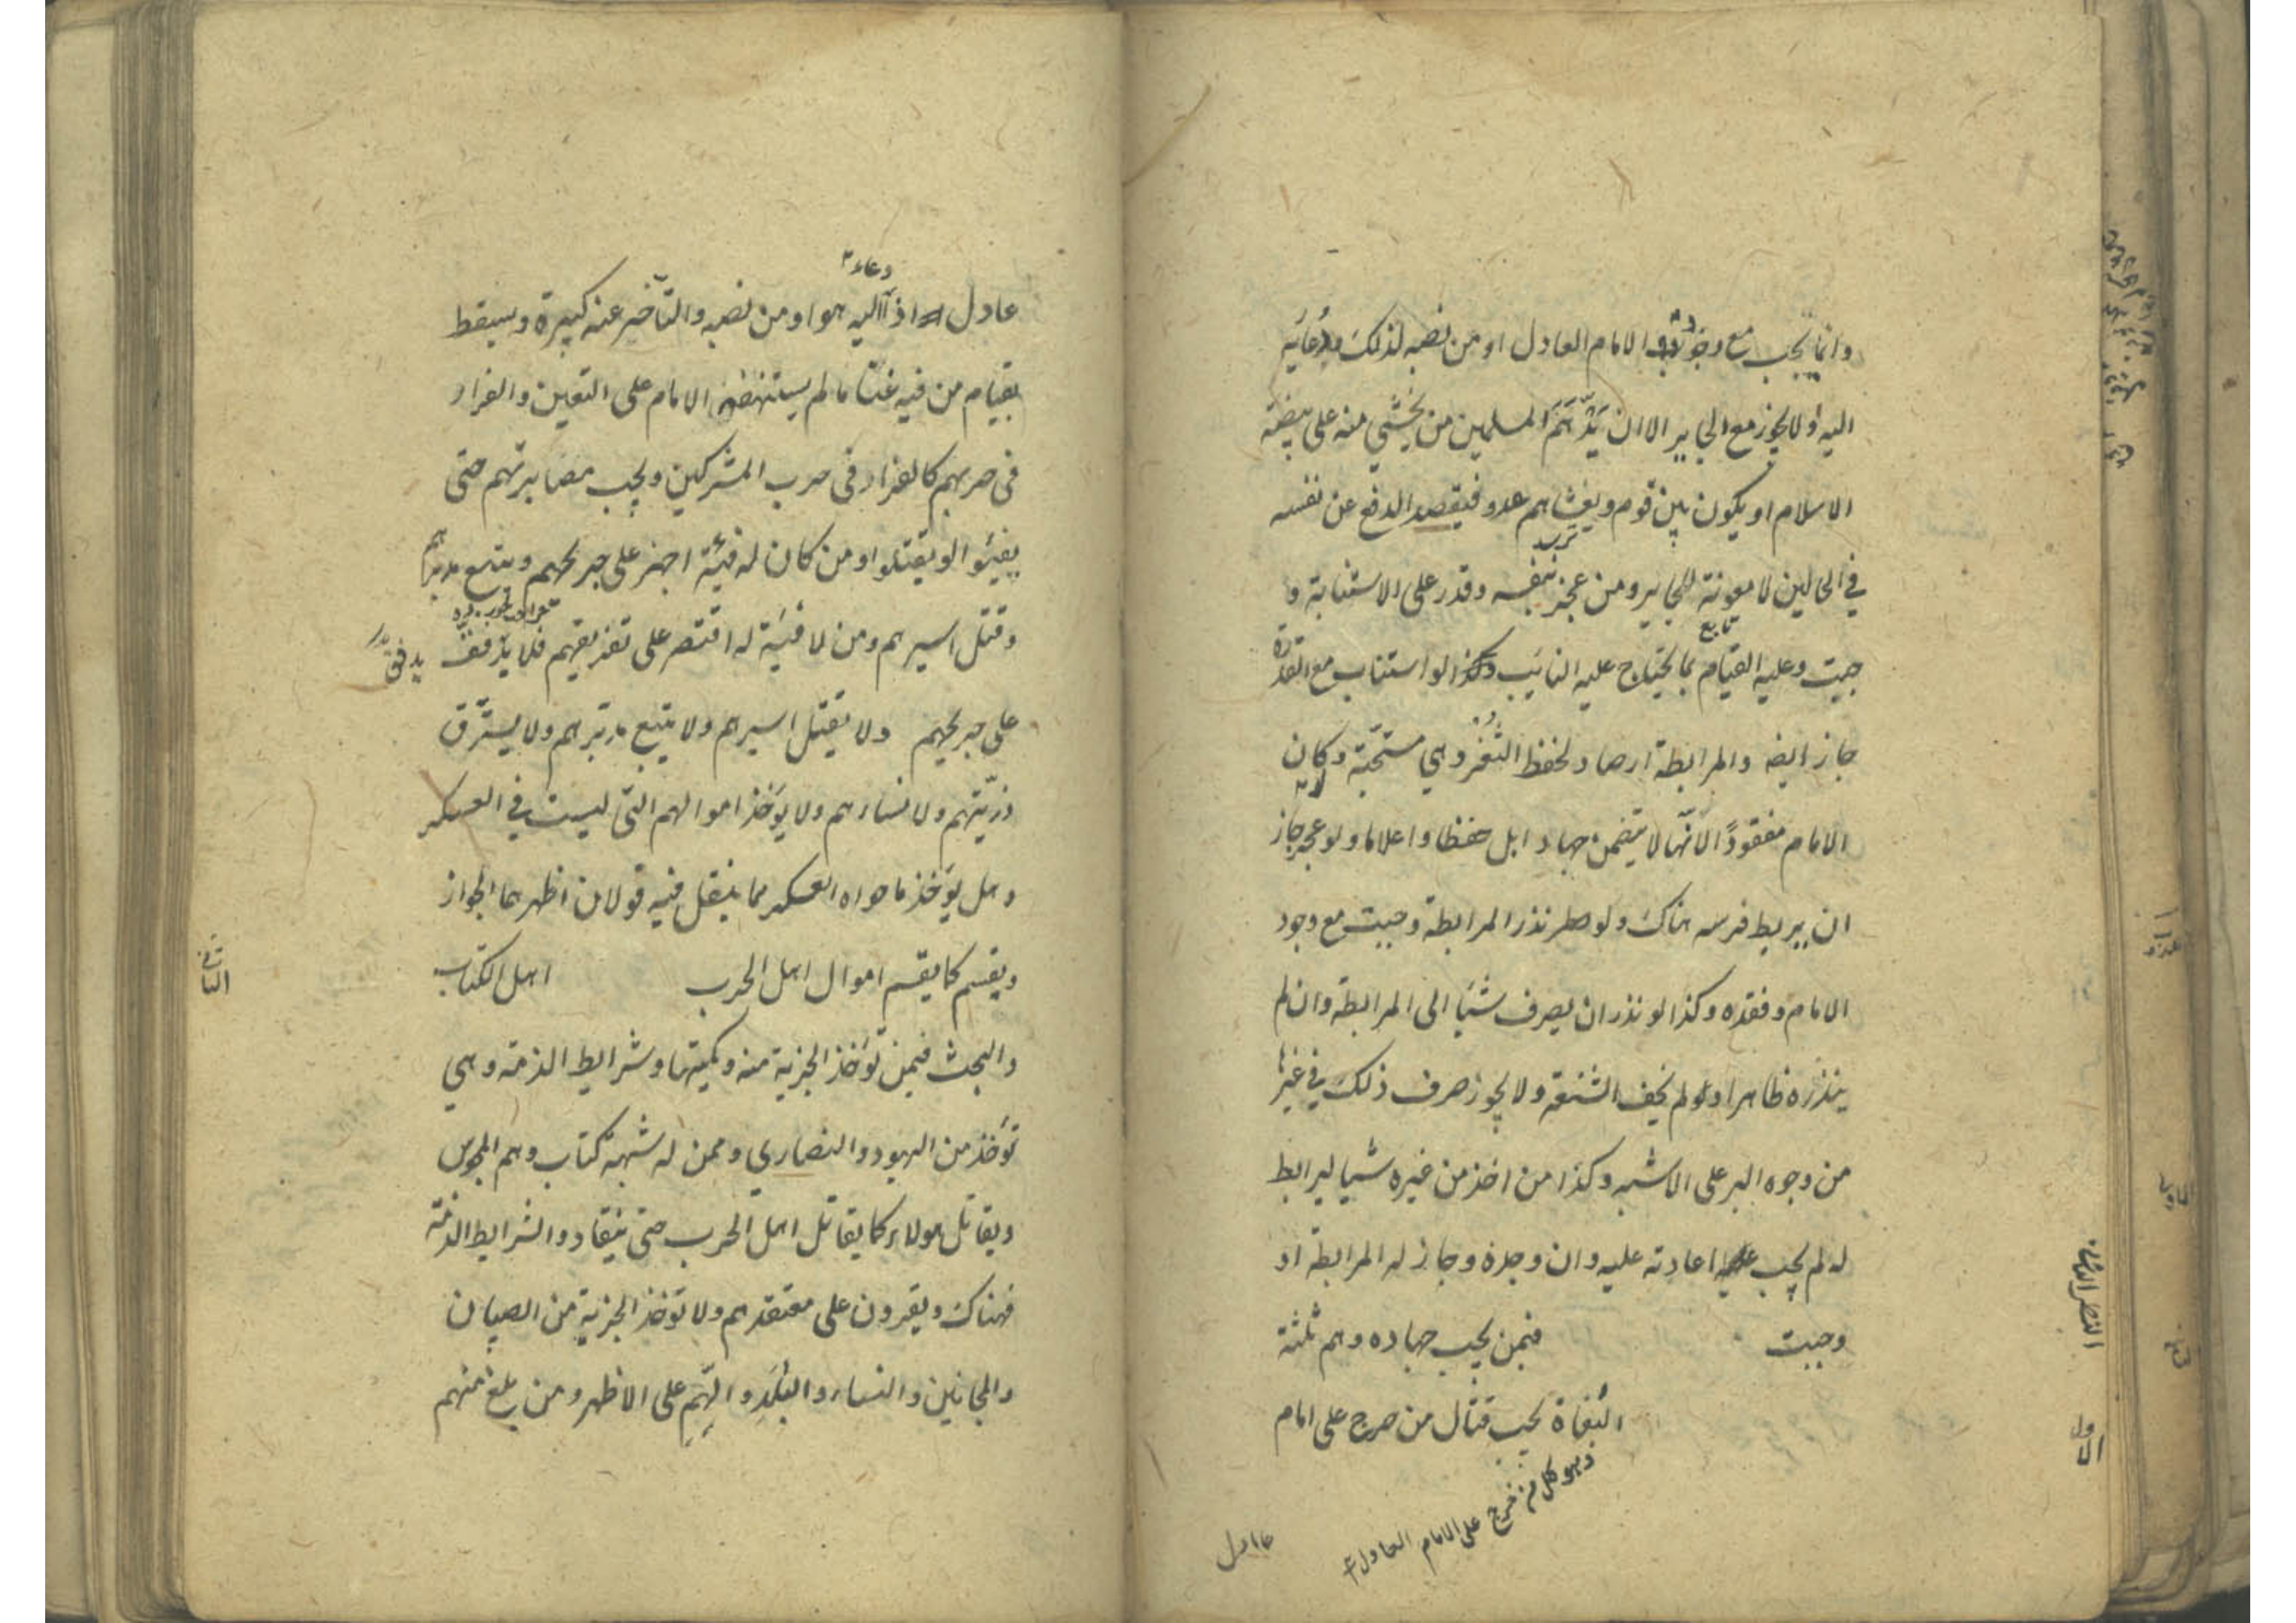 وانما يجب مع وجود الامام العادل او من نصبه لذلك ودعائه
اليه ولا يجوز مع الجاير الا ان يدهم المسلمين من يخشي منه على بيضة
الاسلام او يكون بين قوم ويغشاهم عدو فيقصد الدفع عن نفسه
في الحالين لا معونة للجاير ومن عجز بنفسه وقدر على الاستنابة و
جبت وعليه القيام بما يحتاج عليه النايب وكذا لو استناب مع القدرة
جاز ايضه والمرابطة ارصاد لحفظ الثغر وهي مستحبة وكان
الامام مفقودًا لانّها لا يتضمن جهادا بل حفظا واعلاما ولو عجز جاز
ان يربط فرسه هناك ولو نذر المرابطة وجبت مع وجود
الامام وفقده وكذا لو نذر ان يصرف شئا الى المرابطة وان لم
ينذره ظاهرا ولو لم يخف الشنعة ولا يجوز صرف ذلك في غيرها
من وجوه البر على الاشبه وكذا من اخذ من غيره شيا ليرابط
له لم يجب اعادته عليه وان وجده وجاز له المرابطة او
وجبت فيمن يجب جهاده وهم ثلثة
البُغاة يجب قتال من خرج على امام
وهو كل من خرج على الامام العادل
عادل
الاول
عادل اذا اليه هو او من نصبه والتأخير عنه كبيرة ويسقط
دعاء
بقيام من فيه غنا ما لم يستنهضه الامام على التعين والفرار
في حربهم كالفرار في حرب المشركين ويجب مصابرتهم حتى
يفيئوا او يقتلوا ومن كان له فيئة اجهز على جريحهم ويتبع مدبرهم
وقتل اسيرهم ومن لا فئية له اقتصر على تفريقهم فلا يذفف
على جريحهم ولا يقتل اسيرهم ولا يتبع مدبرهم ولا يسترق
ذريّتهم ولا نساءهم ولا يؤخذ اموالهم التي ليست في العسكر
وهل يؤخذ ما حواه العسكر مما ينقل فيه قولان اظهرهما الجواز
ويقسم كما يقسم اموال اهل الحرب اهل الكتاب
الثاني
والبحث فيمن تؤخذ الجزية منه وكميتها وشرايط الذمة وهي
تؤخذ من اليهود والنصاري وممن له شبهة كتاب وهم المجوس
ويقاتل هولاء كما يقاتل اهل الحرب حتى ينقادوا لشرايط الذمة
فهناك ويقرون على معتقدهم ولا تؤخذ الجزية من الصبيان
والمجانين والنساء والبله والهم على الاظهر ومن بلغ منهم